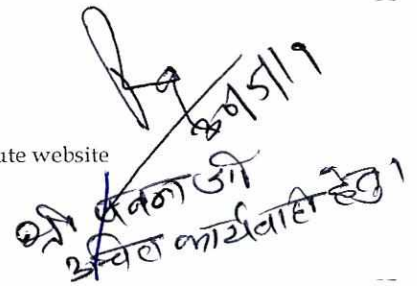 ute website
श्री पवन जी
उचित कार्यवाही हेतु।